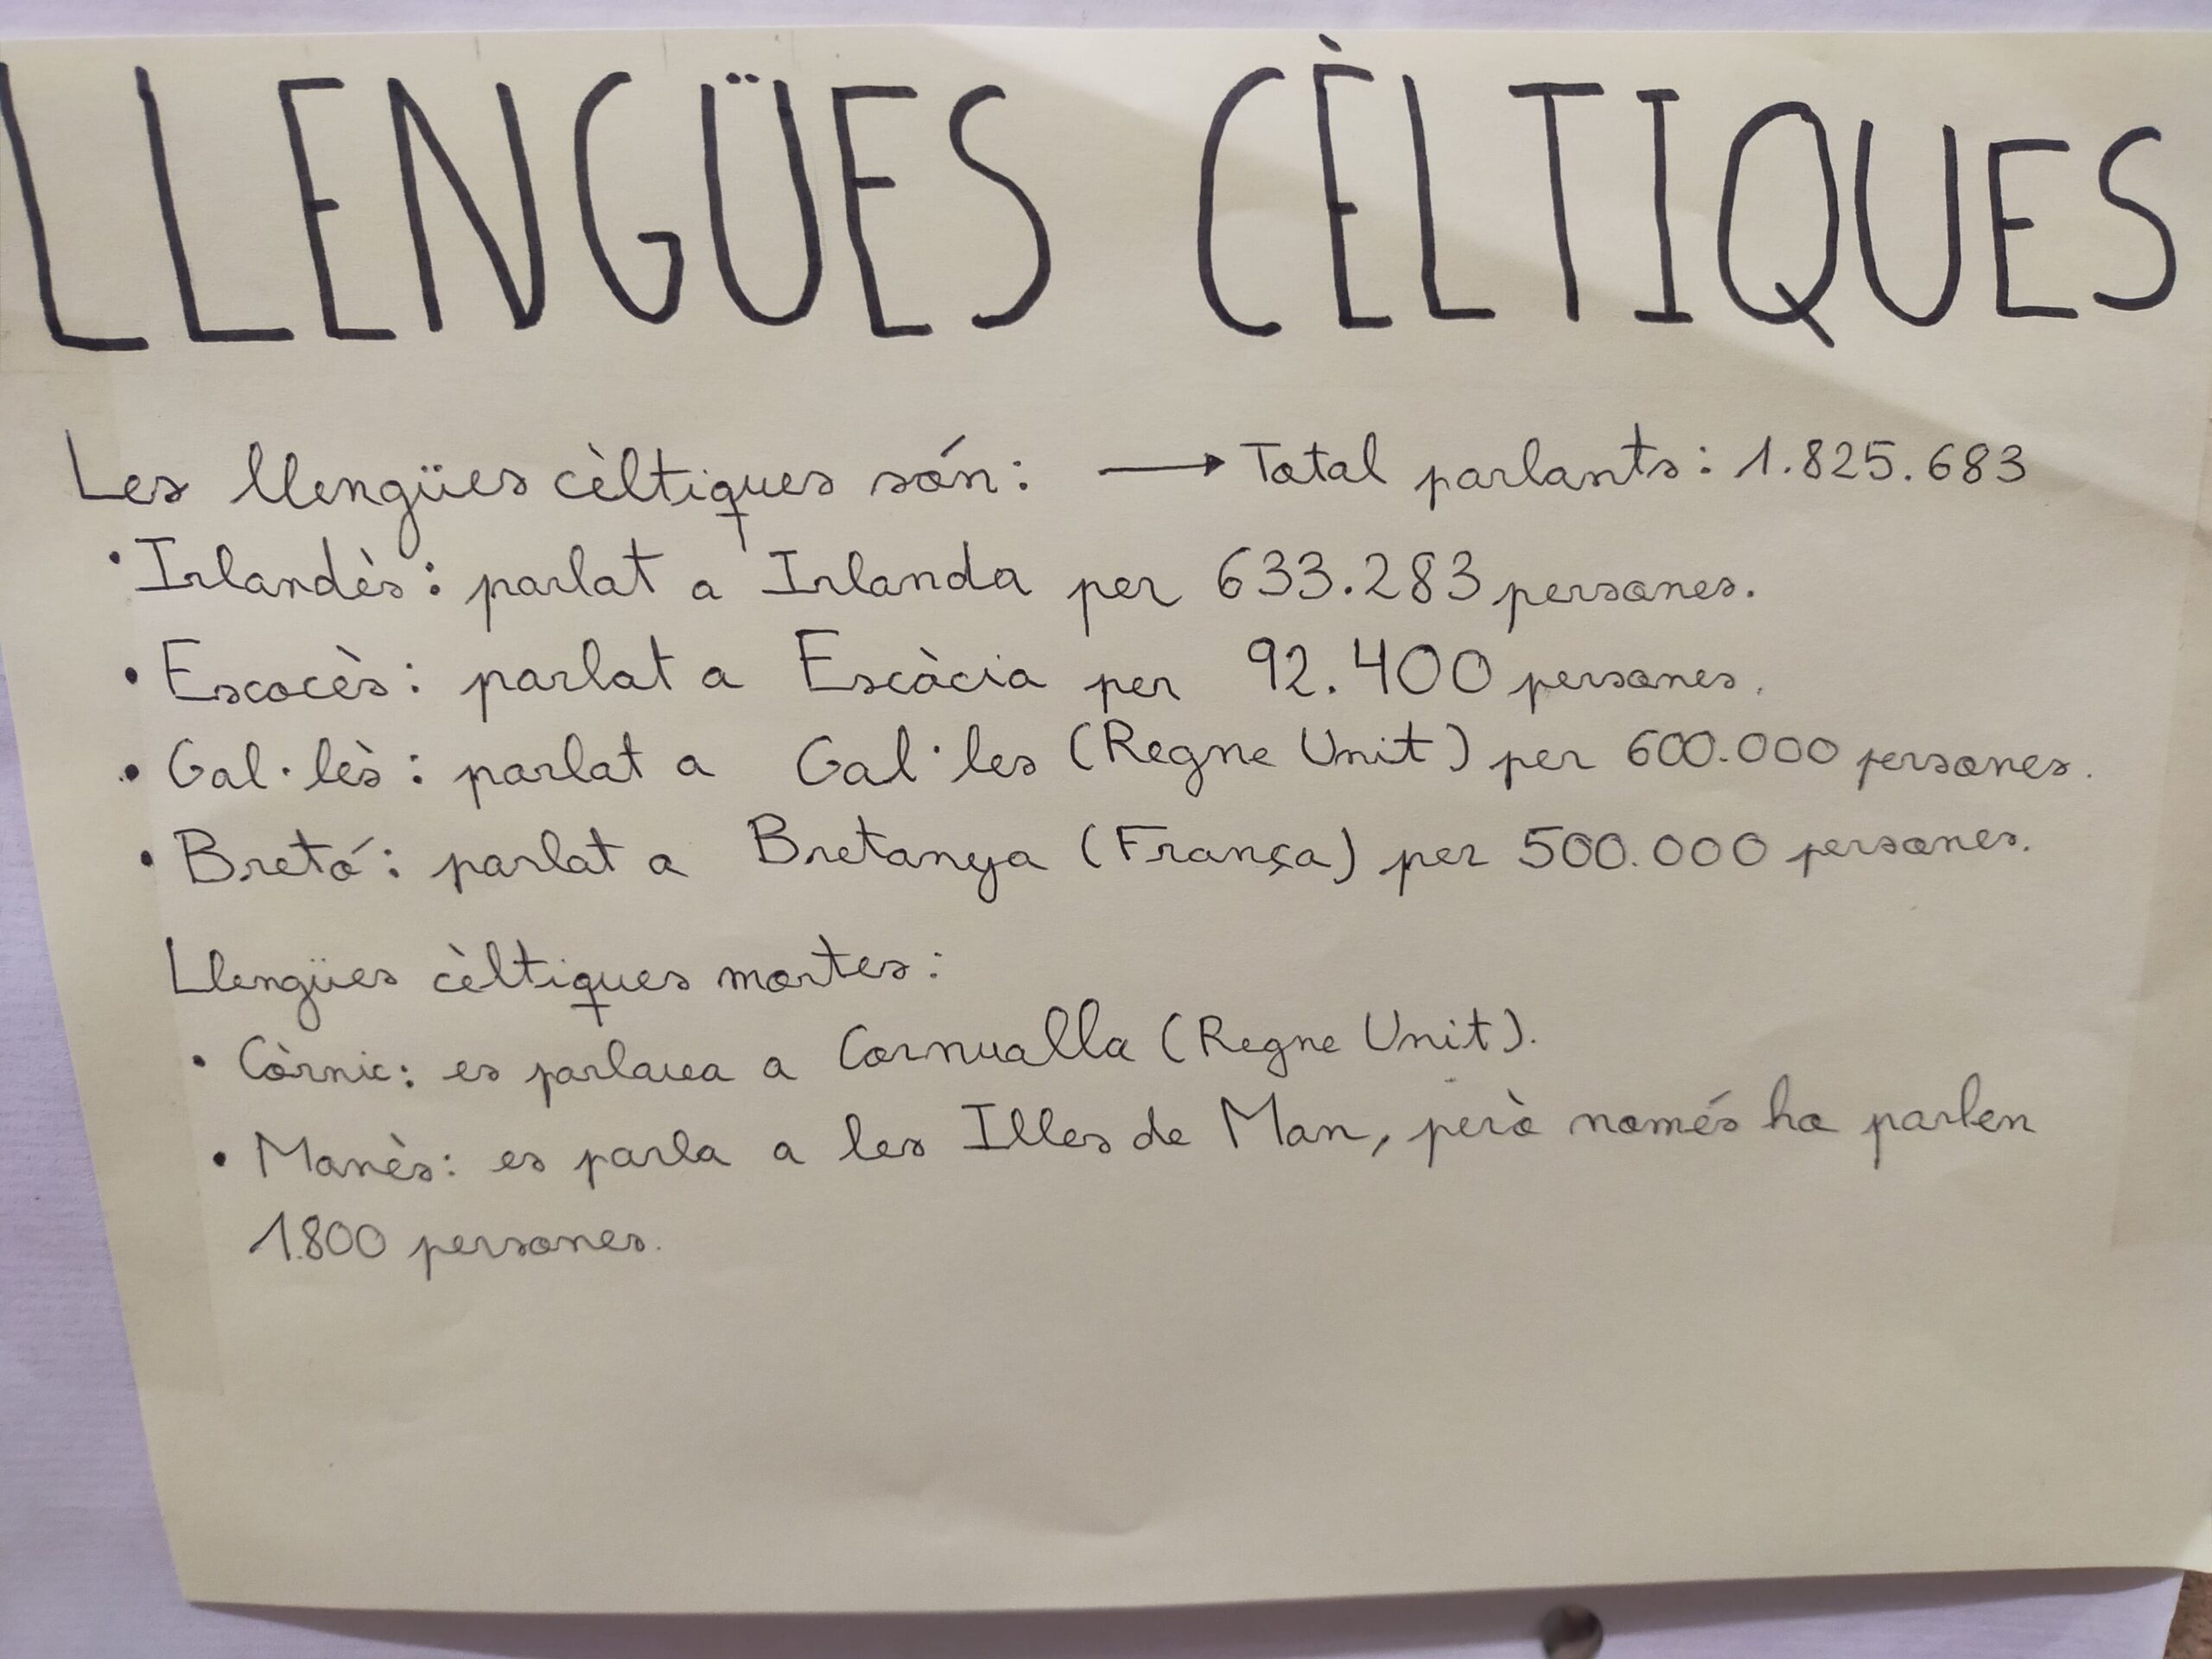 LLENGÜES CÈLTIQUES
Les llengües cèltiques són: → Total parlants: 1.825.683
• Irlandès: parlat a Irlanda per 633.283 persones.
• Escocès: parlat a Escòcia per 92.400 persones.
• Gal·lès: parlat a Gal·les (Regne Unit) per 600.000 persones.
• Bretó: parlat a Bretanya (França) per 500.000 persones.
Llengües cèltiques mortes:
• Còrnic: es parlava a Cornualla (Regne Unit).
• Manès: es parla a les Illes de Man, però només ho parlen
1.800 persones.